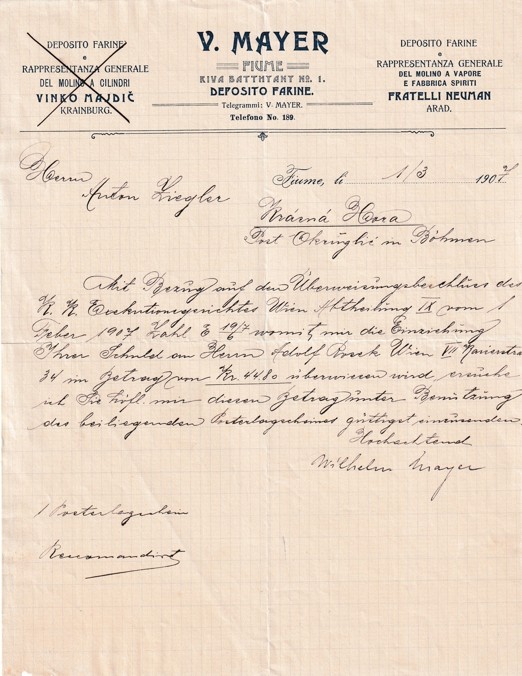 DEPOSITO FARINE
RAPPRESENTANZA GENERALE
DEL MOLINO A CILINDRI
VINKO MAJDIČ
KRAINBURG.
V. MAYER
FIUME
RIVA BATTHYANY No. 1.
DEPOSITO FARINE.
Telegrammi: V. MAYER.
Telefono No. 189.
DEPOSITO FARINE
RAPPRESENTANZA GENERALE
DEL MOLINO A VAPORE
E FABBRICA SPIRITI
FRATELLI NEUMAN
ARAD.
Fiume, li 1/3 1907.
Herrn
Anton Ziegler
Krásná Hora
Post Okrúglic in Böhmen
Mit Bezug auf den Überweisungsbeschluss des
K. K. Executionsgerichtes Wien Abtheilung IX vom 1
Feber 1907 Zahl E 19/7 6 womit mir die Einziehung
Ihrer Schuld an Herrn Adolf Wien VII
34 im Betrag von Kr. 44.80 überwiesen wird ersuche
ich Sie höfl. mir diesen Betrag unter Benützung
des beiliegenden Posterlagscheines gütigst einzusenden.
Hochachtend
Wilhelm Mayer
1 Posterlagschein
Recomandirt